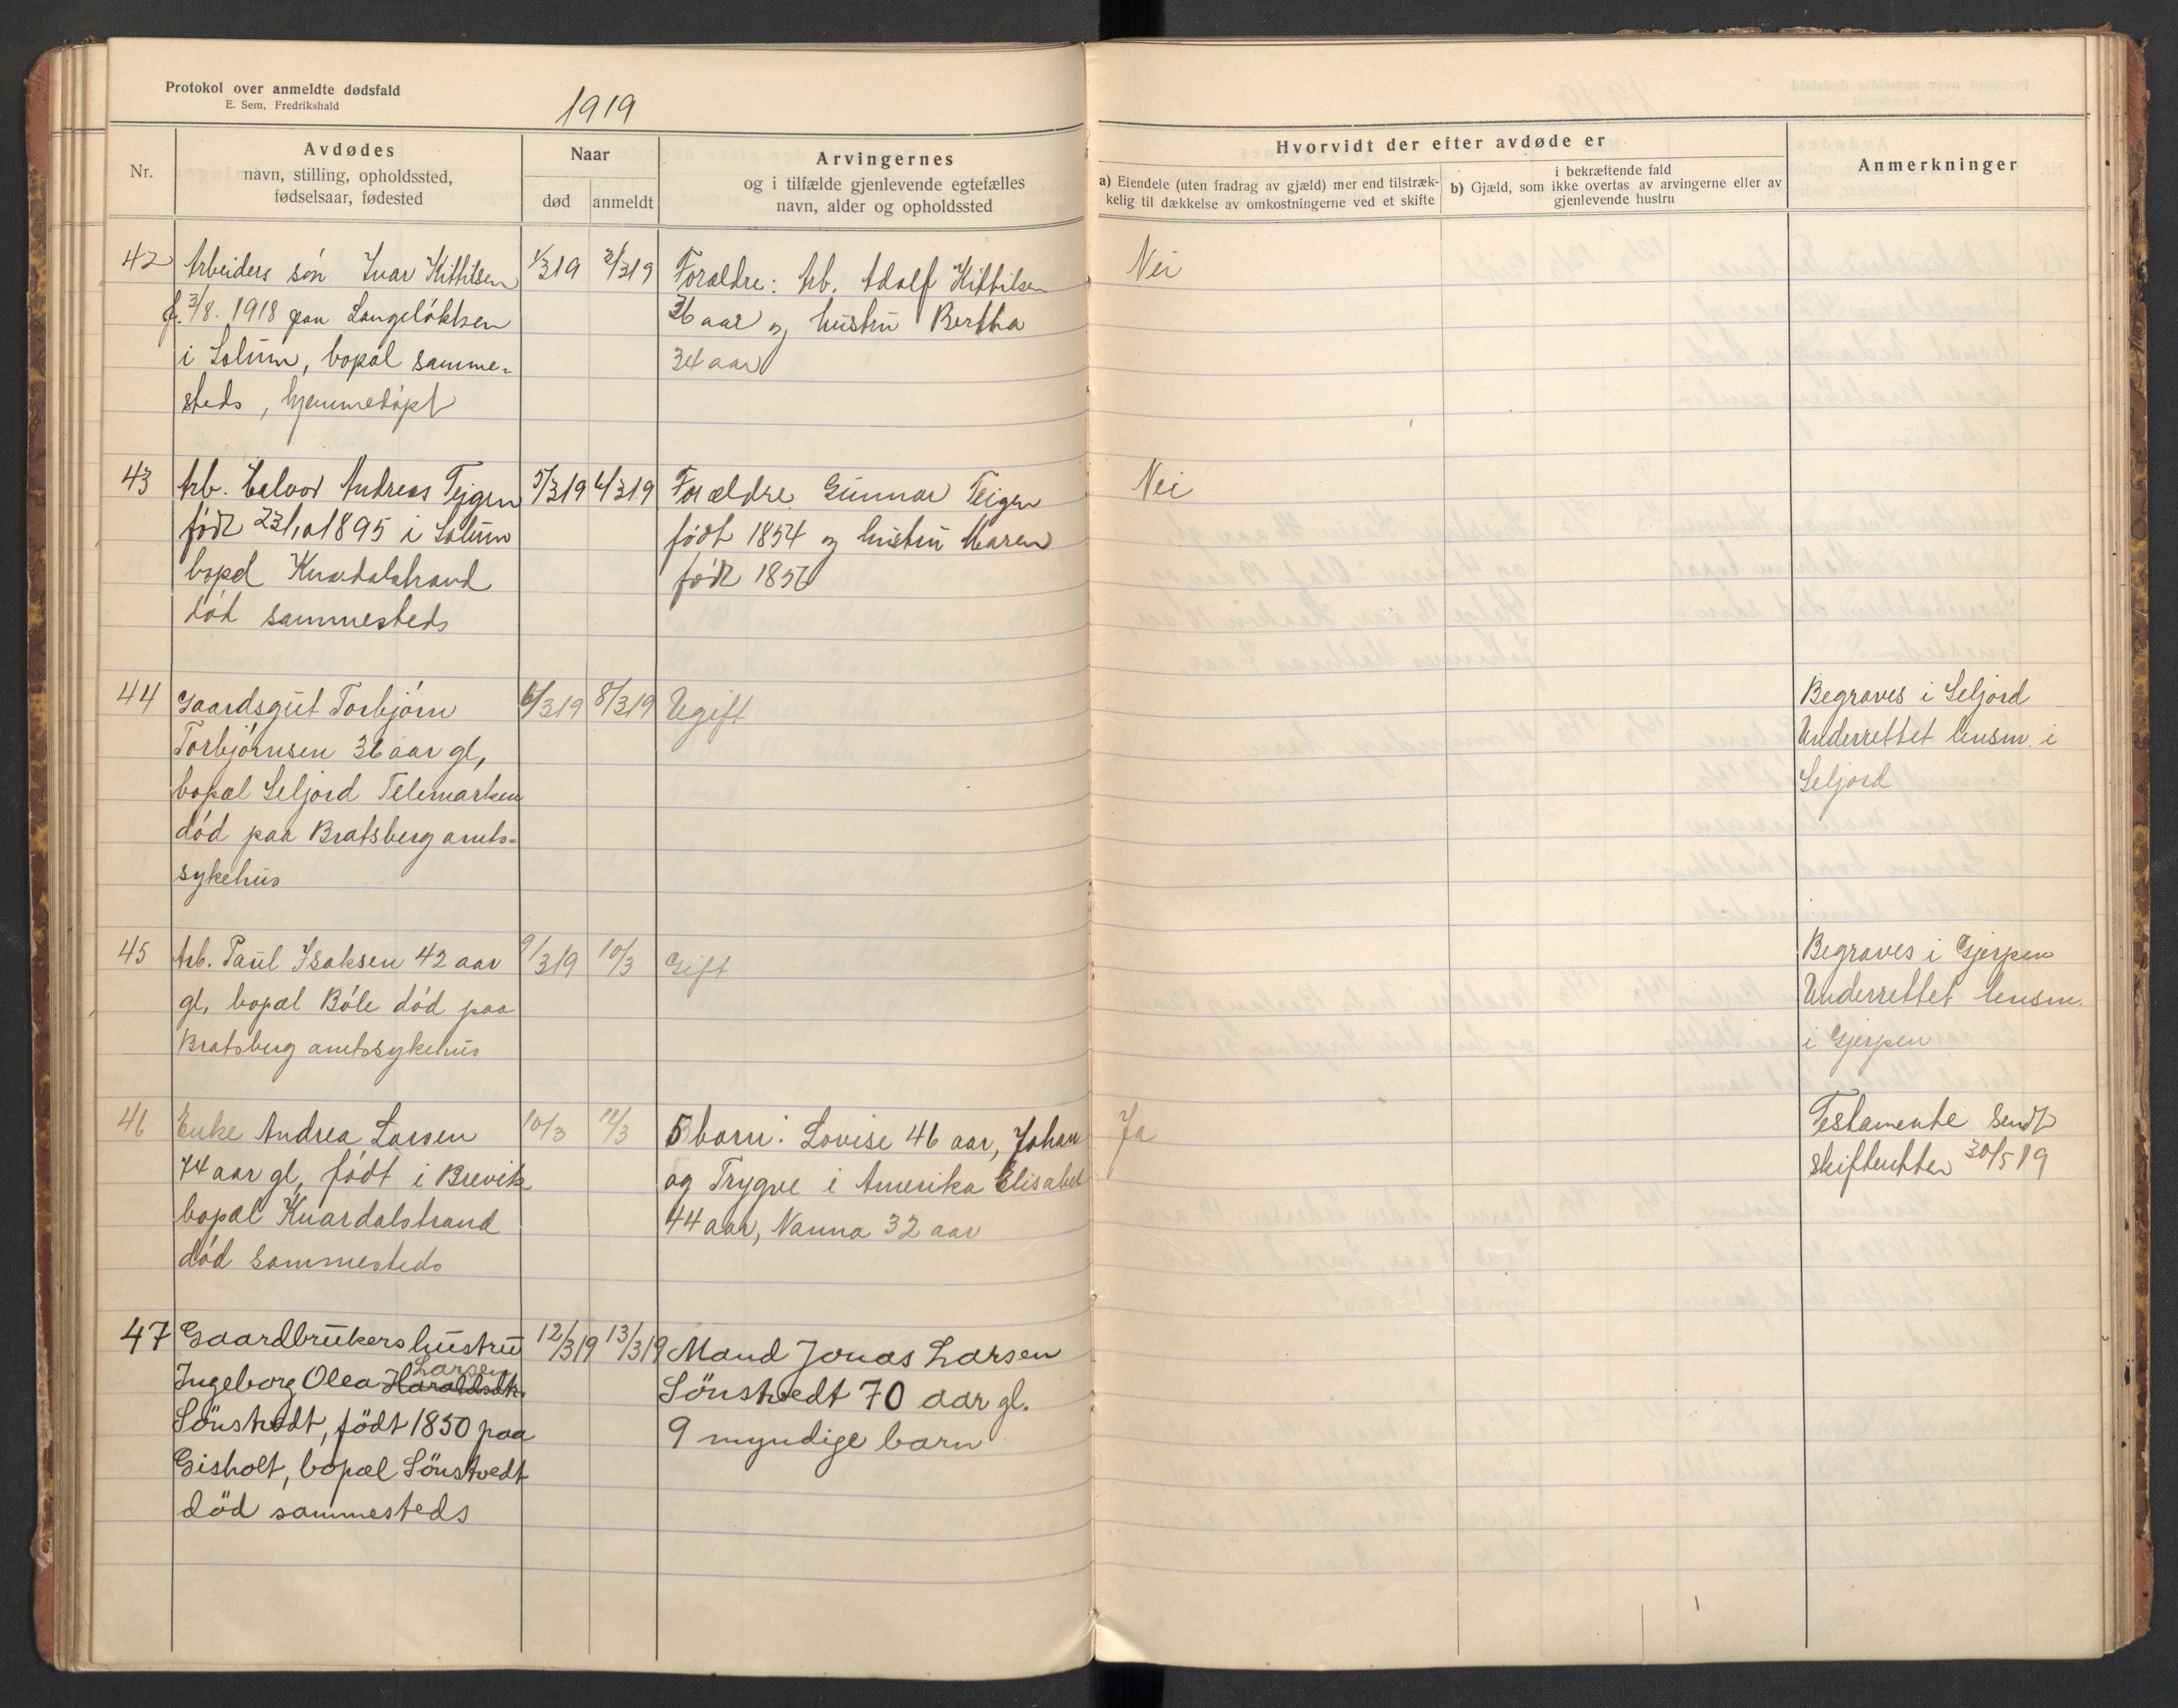 Protokol over anmeldte dødsfald
E. Sem, Fredrikshald
1919
Nr.
Avdødes
navn, stilling, opholdssted,
fødselsaar, fødested
Naar
død
anmeldt
Arvingernes
og i tilfælde gjenlevende egtefælles
navn, alder og opholdssted
Hvorvidt der efter avdøde er
a) Eiendele (uten fradrag av gjæld) mer end tilstræk-
kelig til dækkelse av omkostningerne ved et skifte
i bekræftende fald
b) Gjæld, som ikke overtas av arvingerne eller av
gjenlevende hustru
Anmerkninger
42
Arbeiders søn Ivar Kittilsen
f. 3/8. 1918 paa Langeløkken
i Solum, bopæl samme-
steds, hjemmedøpt
1/3 19
3/3 19
Forældre: Arb. Adolf Kittilsen
36 aar og hustru Bertha
34 aar
Nei
43
Arb. Halvor Andreas Tejgen
født 23/10 1895 i Solum
bopæl Knardalstrand
død sammesteds
5/3 19
6/3 19
Forældre Gunnar Teigen
født 1854 og hustru Maren
født 1856
Nei
44
Gaardsgut Torbjørn
Torbjørnsen 36 aar gl,
bopæl Seljord Telemarken
død paa Bratsberg amts-
sykehus
6/3 19
8/3 19
Ugift
Begraves i Seljord
Underrettet lensm. i
Seljord
45
Arb. Paul Isaksen 42 aar
gl, bopæl Bøle død paa
Bratsberg amtssykehus
9/3 19
10/3
Gift
Begraves i Gjerpen
Underrettet lensm.
i Gjerpen
46
Enke Andrea Larsen
74 aar gl, født i Brevik
bopæl Knardalstrand
død sammesteds
10/3
11/3
5 barn: Lovise 46 aar, Johan
og Trygve i Amerika Elisabet
44 aar, Nanna 32 aar
Ja
Testamente sendt
skifteretten 30/5 19
47
Gaardbrukers hustru
Larsen
Ingeborg Olea Haraldsdtr.
Sönstvedt, födt 1850 paa
Gisholt, bopæl Sönstvedt
död sammesteds
12/3 19
13/3 19
Mand Jonas Larsen
Sönstvedt 70 aar gl.
9 myndige barn